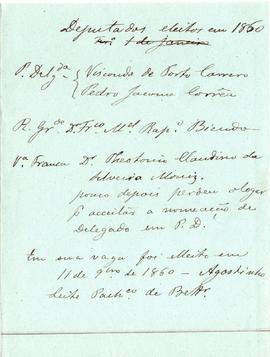 Deputados eleitos em 1860
P. Delgda { Visconde de Porto Carrero
Pedro Jacome Corrêa
R. Grde Dr. Frco Mel Rapo Bicudo
Va Franca Dr. Theotonio Claudino da
Silveira Moniz.
pouco depois perdeu o logar
pa aceitar a nomeação de
Delegado em P. D.
Em sua vaga foi eleito em
11 de 9bro de 1860 – Agostinho
Leite Pachco de Bettr.